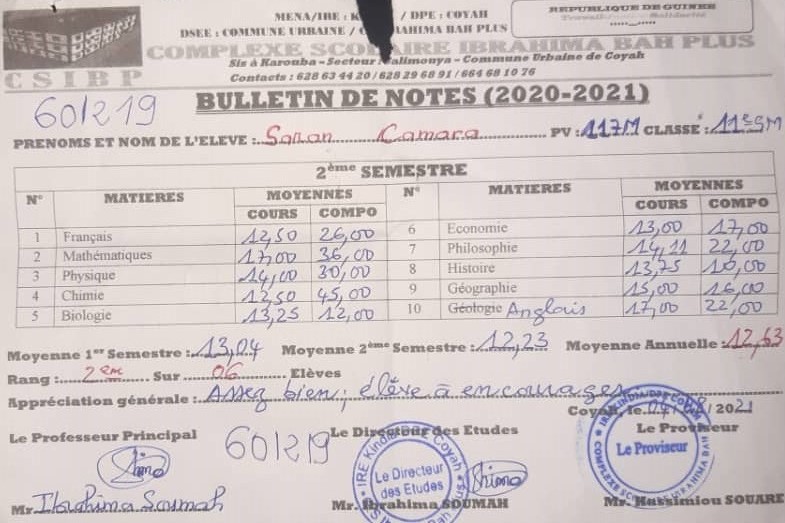 MENA/IRE : K / DPE : COYAH
DSEE : COMMUNE URBAINE / IBRAHIMA BAH PLUS
REPUBLIQUE DE GUINEE
COMPLEXE SCOLAIRE IBRAHIMA BAH PLUS
Sis à Karouba – Secteur : Salimouya – Commune Urbaine de Coyah
CSIBP
Contacts : 628 63 44 20 / 628 29 68 91 / 664 68 10 76
60/219
BULLETIN DE NOTES (2020-2021)
PRENOMS ET NOM DE L'ELEVE : Saran Camara PV : 117M CLASSE : 11èSM
2ème SEMESTRE
N° MATIERES MOYENNES N° MATIERES MOYENNES
COURS COMPO COURS COMPO
1 Français 12,50 26,00 6 Economie 13,00 17,00
2 Mathématiques 17,00 36,00 7 Philosophie 14,11 22,00
3 Physique 14,00 30,00 8 Histoire 13,75 10,00
4 Chimie 12,50 45,00 9 Géographie 15,00 16,00
5 Biologie 13,25 12,00 10 Géologie Anglais 17,00 22,00
Moyenne 1er Semestre : 13,04 Moyenne 2ème Semestre : 12,23 Moyenne Annuelle : 12,63
Rang : 2èm Sur 06 Elèves
Appréciation générale : Assez bien ; élève à encourager
Coyah, le 04/ /2021
Le Professeur Principal Le Directeur des Etudes Le Proviseur
60/219
Le Directeur des Etudes
Le Proviseur
Mr. Ibrahima Soumah Mr. Ibrahima SOUMAH Mr. Hassimiou SOUARE